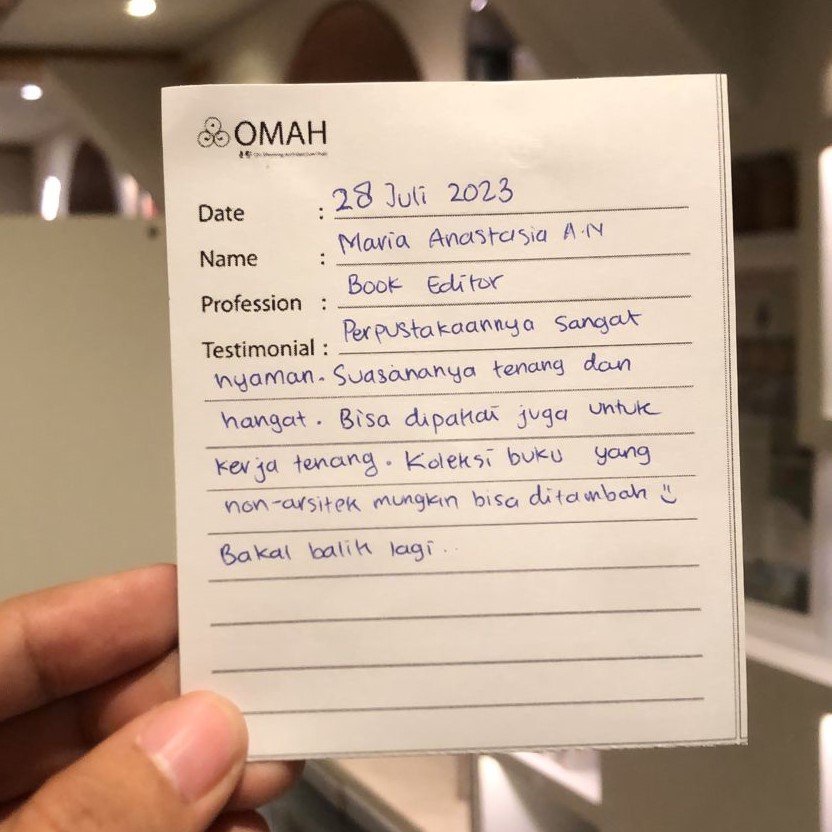 OMAH
Date : 28 Juli 2023
Name : Maria Anastasia A.N
Profession : Book Editor
Testimonial : Perpustakaannya sangat
nyaman. Suasananya tenang dan
hangat. Bisa dipakai juga untuk
kerja tenang. Koleksi buku yang
non-arsitek mungkin bisa ditambah
Bakal balik lagi..